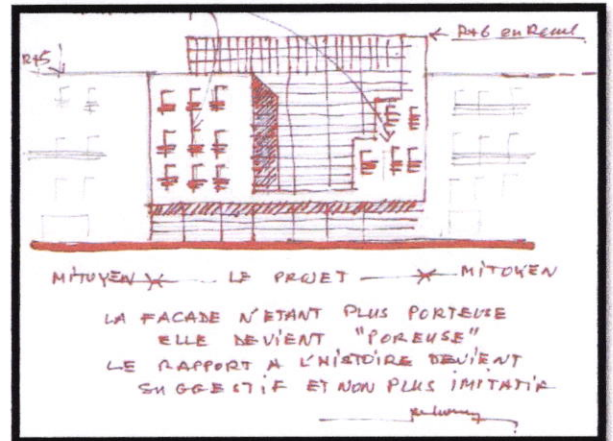 R+6 en Recul
R+5
MITOYEN LE PROJET MITOYEN
LA FACADE N'ETANT PLUS PORTEUSE
ELLE DEVIENT "POREUSE"
LE RAPPORT A L'HISTOIRE DEVIENT
SUGGESTIF ET NON PLUS IMITATIF